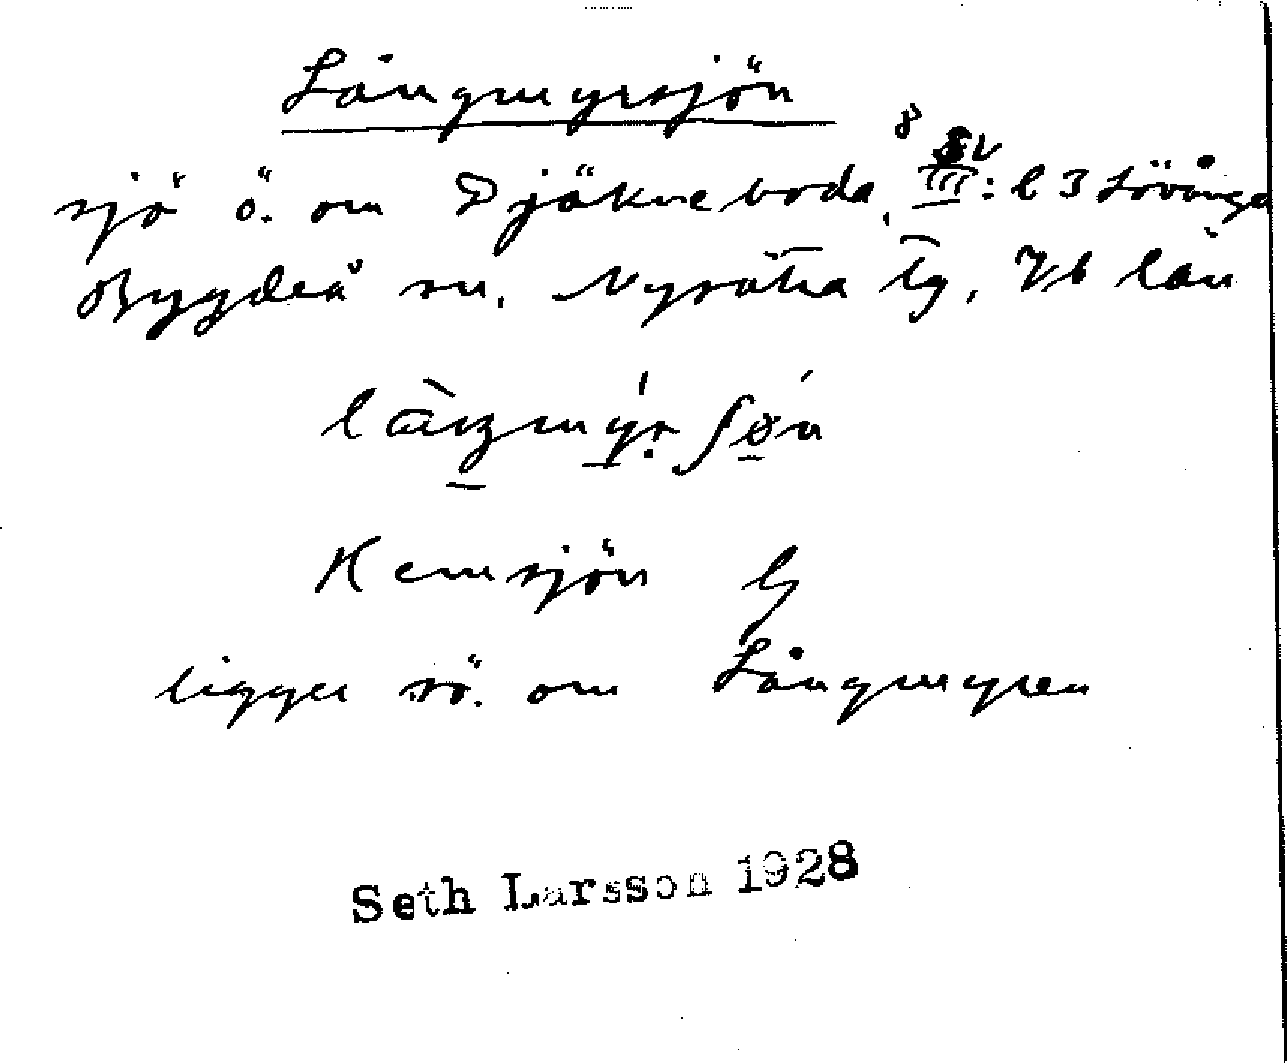 Långmyrsjön
sjö ö. om Djäkneboda, 8 SV III: l 3 Lövånger
Bygdeå sn. Nysätra tg, Vb län
sjön
ligger sö. om Långmyren
Seth Larsson 1928